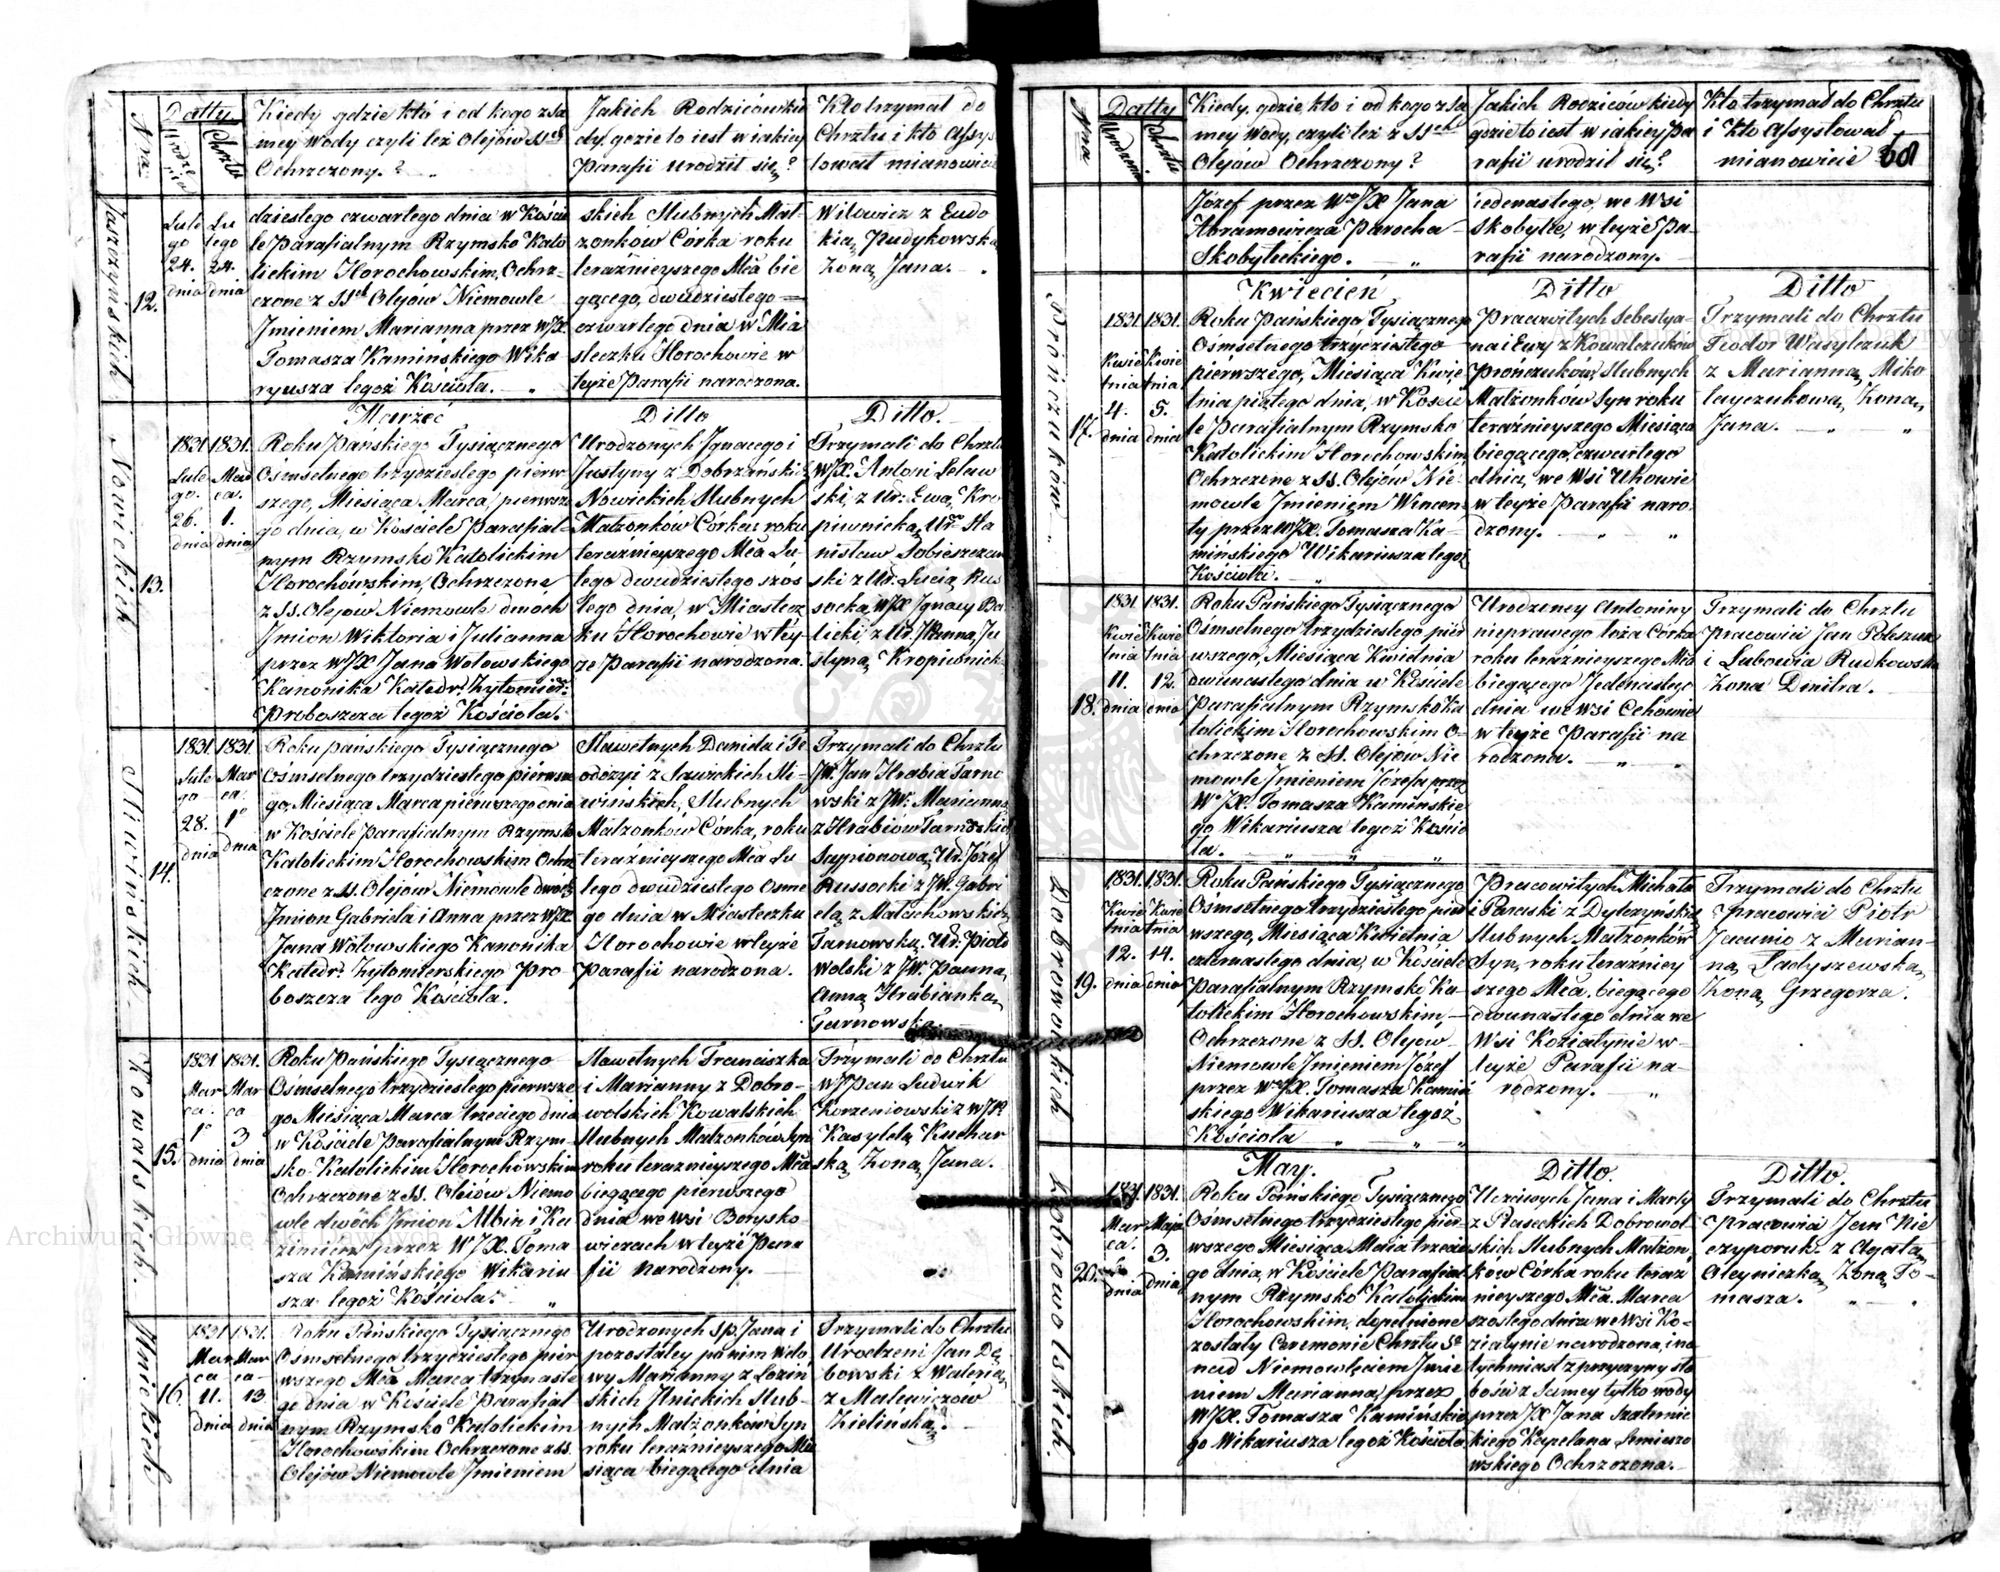 Nra
Datty
Urodze
nia
Chrztu
Kiedy gdzie któ i od kogo z Sa
mey Wody czyli też Olejów SSch
Ochrzczony?
Jakich Rodziców kie
dy, gdzie to iest w iakiey
Parafii urodził się?
Kto trzymał do
Chrztu i kto Assys
tował mianowicie
Jaszczyńskich
12.
Lute
go
24.
dnia
Lu
tego
24.
dnia
dziestego czwartego dnia w Koście
le Parafialnym Rzymsko Kato
lickim Horochowskim, Ochrz-
czone z SSch Olejów Niemowle
Jmieniem Marianna przez WJX
Tomasza Kamińskiego Wika
ryusza tegoż Kościoła.
skich Slubnych Mał-
zonków Córka roku
teraźnieyszego Mca bie
gącego, dwudziestego
czwartego dnia w Mia
steczku Horochowie w
teyże Parafii narodzona.
Witowicz z Eudo
kią Pudykowską
Żoną Jana.
Marzec
Ditto
Ditto.
Nowickich
13.
1831
Lute
go.
26.
dnia
1831.
Mar
ca.
1.
dnia
Roku Pańskiego Tysiącznego
Osmsetnego trzydziestego pierw
szego, Miesiąca Marca, pierwsze
go dnia, w Kościele Parafial-
nym Rzymsko Katolickim
Horochówskim, Ochrzczone
z SS. Olejow Niemowle dwoch
Jmion Wiktoria i Julianna
przez WJX Jana Wołowskiego
Kanonika Katedr: Żytomier:
Proboszcza tegoż Kościoła.
Urodzonych Jgnacego i
Justyny z Dobrzańskich
Nowickich Slubnych
Małzonków Córka roku
teraźnieyszego Mca Lu-
tego dwudziestego szós
tego dnia, w Miastecz
ku Horochowie w téy-
że Parafii narodzona.
Trzymali do Chrztu
WJX. Antoni
ski, z Ur: Ewą, Kro
piwnicką, Ur: Sta
nisław Sobieszczań
ski z Ur: Lucią Rus
socką, WJX Jgnacy Ba
licki z Ur: Anną, Ju
styną, Kropiwnick
14.
1831.
Lute
go
28.
dnia
1831.
Mar
ca.
1o
dnia
Roku pańskiego Tysiącznego
Osmsetnego trzydziestego pierwsze
go, Miesiąca Marca pierwszego dnia
w Kościele Parafialnym Rzymsko
Katolickim Horochowskim Ochrz
czone z SS. Olejów Niemowle dwóch
Jmion Gabriela i Anna przez WJX
Jana Wołowskiego Kanonika
Katedr: Żytomierskiego Pro
boszcza tego Kościoła.
Sławetnych Daniela i Te
odozyi z
Slubnych
Małzonków Córka, roku
teraźnieyszego Mca Lu
tego dwudziestego Osme
go dnia w Miasteczku
Horochowie w teyże
Parafii narodzona.
Trzymali do Chrztu
JW. Jan Hrabia Tarno
wski z JW: Marianną
z Hrabiów Tarnowskich
Ur: Józef
Russocki z JW. Gabri
elą, z Małachowskich
Tarnowską, Ur:
wolski z JW. Panną,
Anną Hrabianką,
Tarnowską
Kowalskich.
15.
1831
Mar
ca.
1o
dnia
1831.
Mar
ca
3
dnia
Roku Pańskiego Tysiącznego
Osmsetnego trzydziestego pierwsze
go Miesiąca Marca trzeciego dnia
w Kościele Parafialnym Rzym-
sko Katolickim Horochowskim
Ochrzczone z SS. Olejów Niemo
wle dwóch Jmion Albin i Ka
zimierz przez WJX. Toma
sza Kamińskiego Wikariu
sza tegoż Kościoła.
Sławetnych Franciszka
i Marianny z Dobro-
wolskich Kowalskich
Slubnych Małzonków Syn
roku teraznieyszego Mca
biegącego pierwszego
dnia we Wsi Borysko-
wiczach w teyże Para
fii Narodzony.
Trzymali do Chrztu
WJPan Ludwik
Korzeniowski z WJP.
Kuchar
ską, Żoną, Jana.
Jlnickich
16.
1831
Mar
ca
11.
dnia
1831.
Mar
ca
13
dnia
Roku Pańskiego Tysiącznego
Osmsetnego trzydziestego pier
wszego Mca Marca trzynaste
go dnia w Kościele Parafial
nym Rzymsko Katolickim
Horochowskim Ochrzczone z SS.
Olejów Niemowle Jmieniem
Urodzonych Sp. Jana i
pozostałey po nim wdo
wy Marianny z Łoziń
skich Jlnickich Slub-
nych Małżonków Syn
roku teraznieyszego Mie
siąca biegącego dnia
Trzymali do Chrztu
Urodzeni Jan Dę
bowski z Walerią
z Malewiczow
Zielinską.
Nra
Datty
Urodzenia
Chrztu
Kiedy, gdzie, kto i od kogo z Sa
mey Wody, czyli też z SSch
Olejów Ochrzczony?
Jakich Rodziców kiedy
gdzie to iest w iakiey Pa
rafii urodził się?
Kto trzymał do Chrztu
i Kto Assystował
mianowicie
68
Józef przez WoJX Jana
Abramowicza Parocha
Skobyleckiego.
iedenastego, we Wsi
Skobyłce, w teyże Pa-
rafii narodzony.
Kwiecień
Ditto
Ditto
Prończuków
17.
1831.
Kwie
tnia
4.
dnia
1831.
Kwie
tnia
5.
dnia
Roku Pańskiego Tysiącznego
Osmsetnego trzydziestego
pierwszego, Miesiąca Kwie
tnia piątego dnia, w Koscie
le Parafialnym Rzymsko
Katolickim Horochowskim
Ochrzczone z SS. Olejów Nie-
mowle Jmieniem Wincen
ty przez WJX. Tomasza Ka-
mińskiego Wikariusza tegoż
Kościoła.
Pracowitych Sebestya-
na i Ewy z Kowalczuków
Prończuków, Slubnych
Małzonków Syn roku
teraźnieyszego Miesiąca
biegącego, czwartego
dnia, we Wsi Uhowie
w teyże Parafii naro-
dzony.
Trzymali do Chrztu
Teodor Wasylczuk
z Marianną Miko
łayczukową, Żoną,
Jana.
18.
1831.
Kwie
tnia
11.
dnia
1831.
Kwie
tnia
12.
dnia
Roku Pańskiego Tysiącznego
Osmsetnego trzydziestego pier
wszego, Miesiąca Kwietnia
dwunastego dnia w Kościele
Parafialnym Rzymsko Ka
tolickim Horochowskim O-
chrzczone z SS. Olejów Nie
mowle Jmieniem Józefa przez
WoJX. Tomasza Kamińskie
go Wikariusza tegoż Kościo
ła.
Urodzoney Antoniny
nieprawego łoża Córka
roku teraźnieyszego Mca
biegącego Jedenastego
dnia we Wsi Cehowie
w teyże Parafii na
rodzona.
Trzymali do Chrztu
Pracowici Jan Poleszuk
i Lubowia Rudkowska
Żona Dmitra.
Dobrowolskich
19.
1831.
Kwie
tnia
12.
dnia
1831.
Kwie
tnia
14.
dnia
Roku Pańskiego Tysiącznego
Osmsetnego trzydziestego pier
wszego, Miesiąca Kwietnia
czternastego dnia, w Kościele
Parafialnym Rzymsko Ka-
tolickim Horochowskim,
Ochrzczone z SS. Olejów
Niemowle Jmieniem Józef
przez WoJX. Tomasza Kamiń
skiego Wikariusza tegoż
Kościoła
Pracowitych Michała
i Paraski z
Slubnych Małzonków
Syn, roku terazniey
szego Mca. biegącego
dwunastego dnia we
Wsi Koziatynie w
teyże Parafii na-
rodzony.
Trzymali do Chrztu
Pracowici Piotr
z Marian-
ną, Ładyszewską,
Żoną, Grzegorza.
May.
Ditto.
Ditto.
Dobrowolskich.
20.
1831.
Mar
ca.
dnia
1831.
Maja
3.
dnia
Roku Pańskiego Tysiącznego
Osmsetnego trzydziestego pier-
wszego Miesiąca Maia trzecie
go dnia, w Kościele Parafial
nym Rzymsko Katolickim
Horochowskim, dopełnione
zostały Ceremonie Chrztu So
nad Niemowlęciem Jmie
niem Marianna, przez
WJX. Tomasza Kamińskie
go Wikariusza tegoż Kościoła
Uczciwych Jana i Marty
z Piaseckich Dobrowol
skich Slubnych Małżon
ków Córka roku teraz
nieyszego Mca. Marca
szóstego dnia we Wsi Ko-
ziatynie narodzona, i na
tychmiast z przyczyny sła
bości z Samey tylko wody
przez JX Jana Szaternic
kiego Kapelana
wskiego Ochrzczona.
Trzymali do Chrztu
Pracowici Jan Nie
czyporuk z Agatą
Oleyniczką, Żoną To-
masza.
Archiwum Główne Akt Dawnych
Archiwum Główne Akt Dawnych